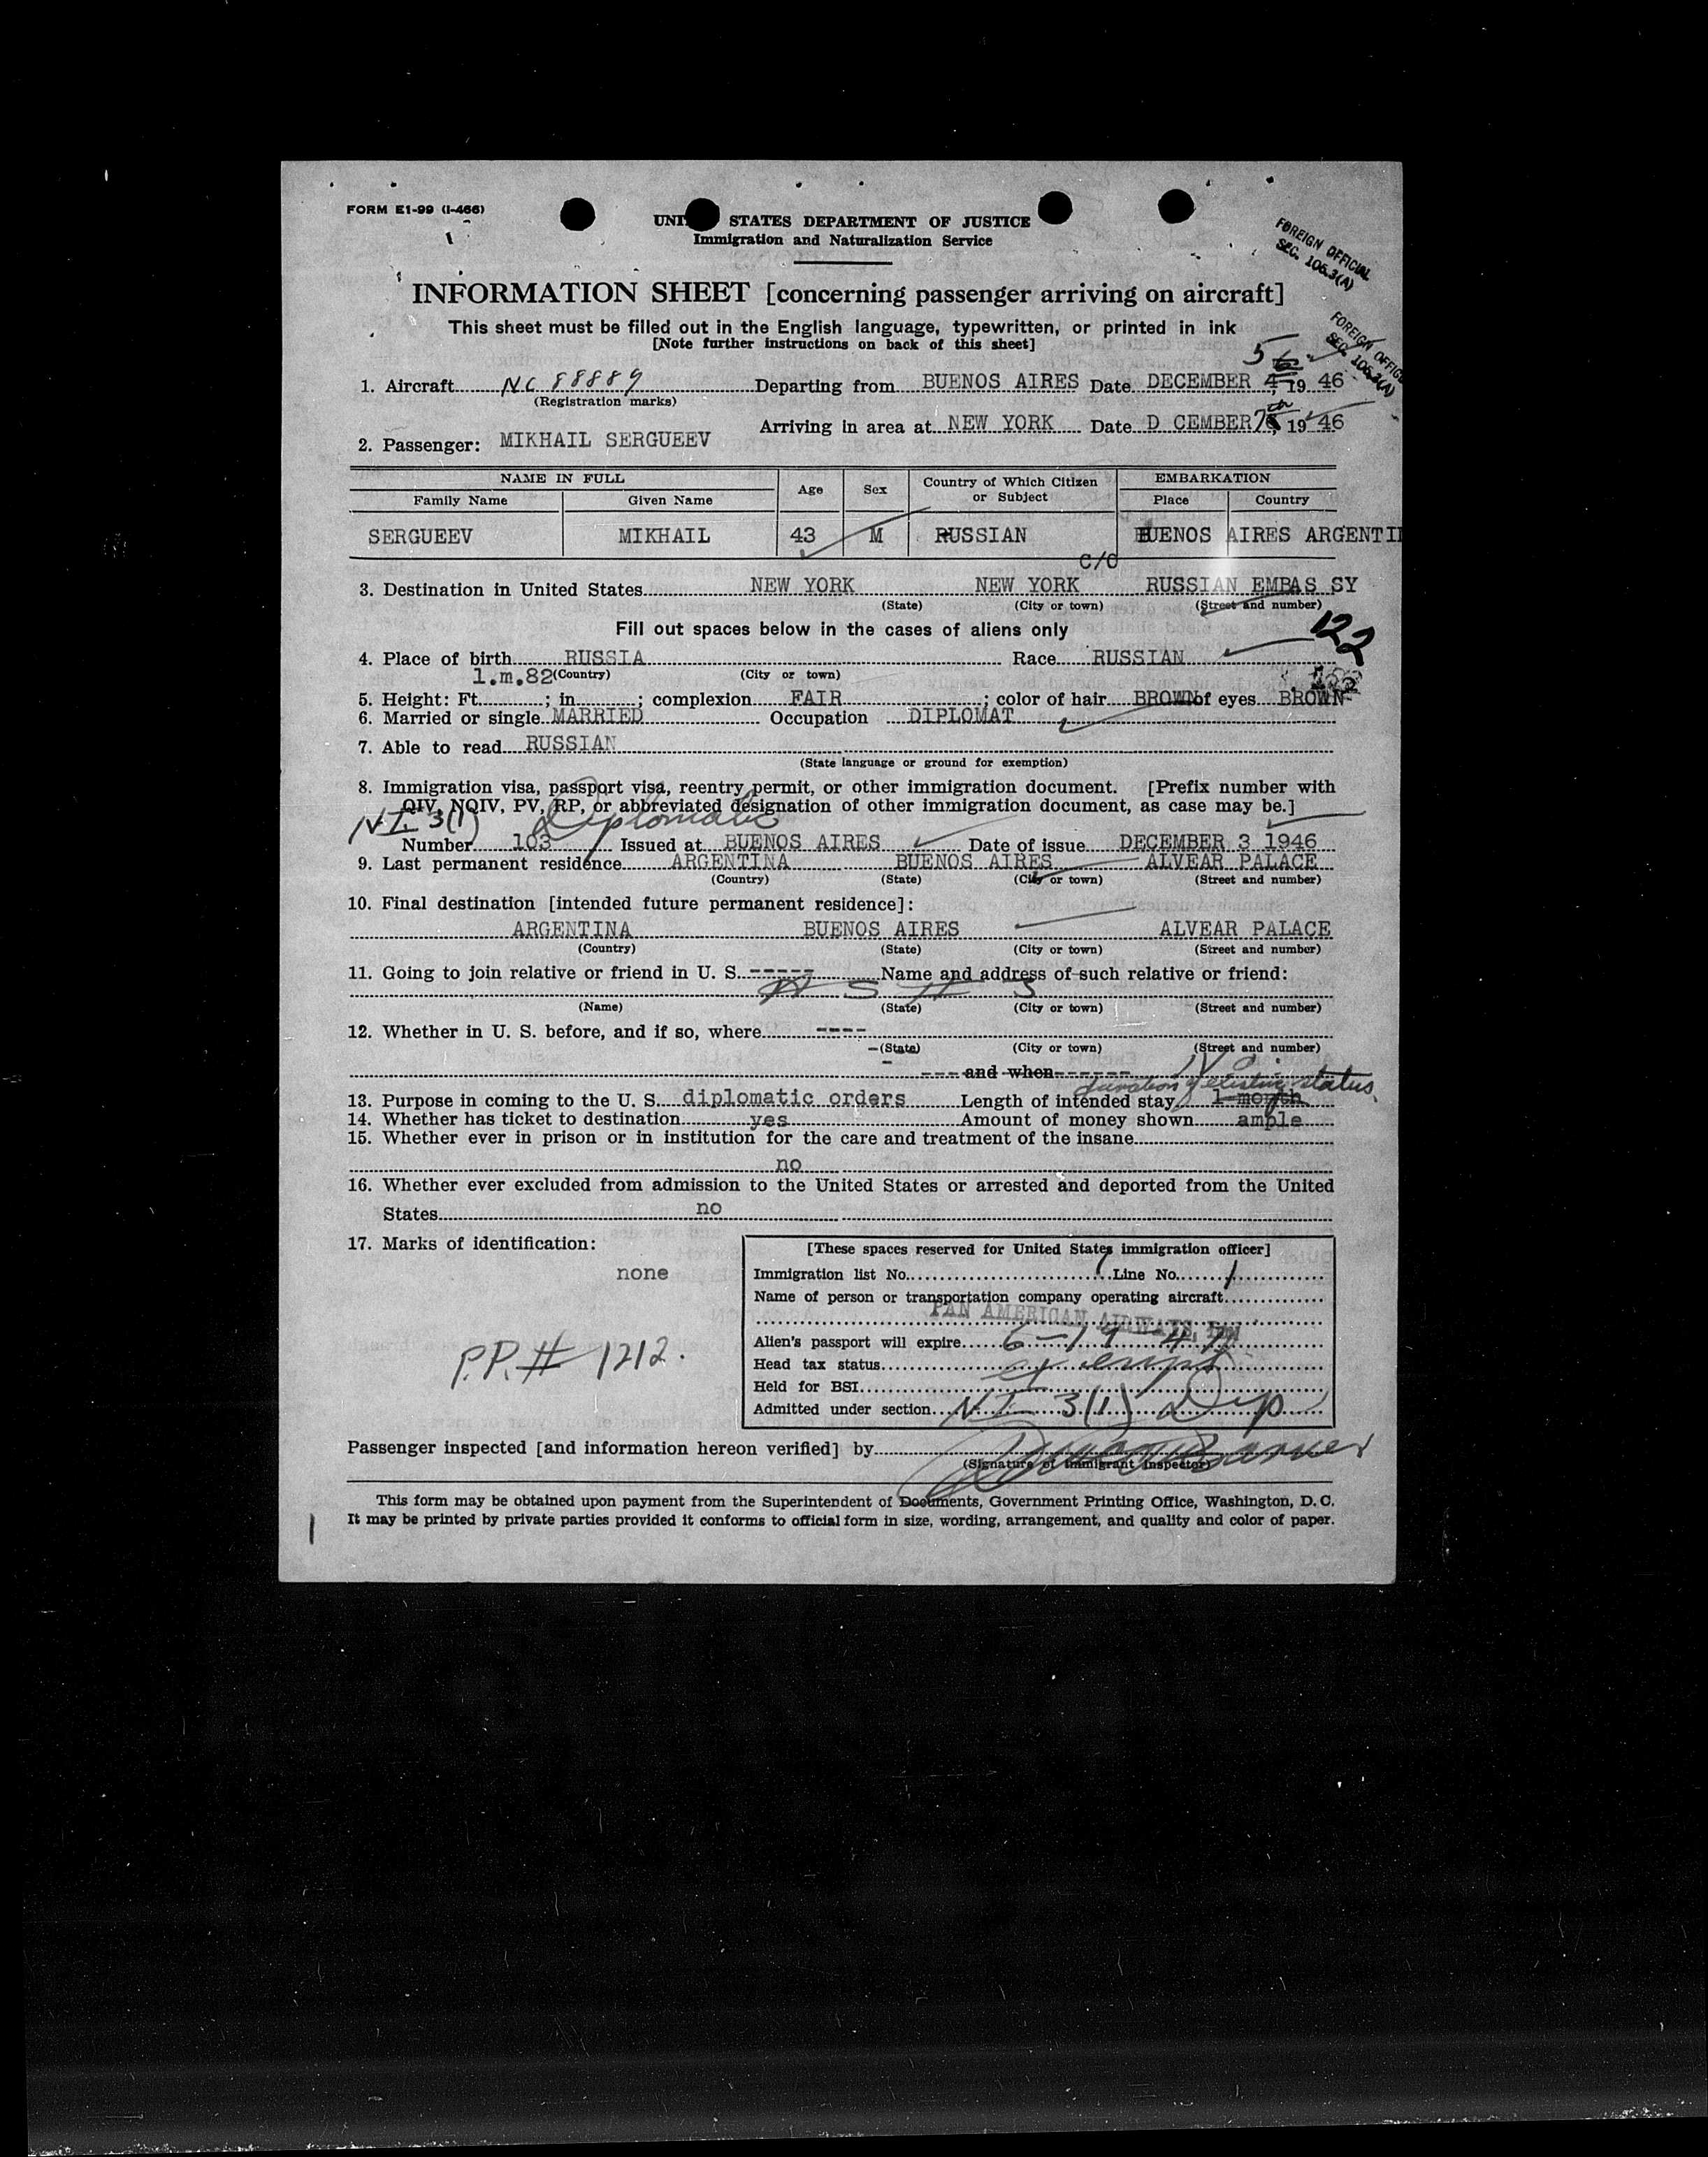 FORM E1-99 (I-466)
UNI STATES DEPARTMENT OF JUSTICE
Immigration and Naturalization Service
FOREIGN OFFICIAL
SEC. 105.3(A)
INFORMATION SHEET [concerning passenger arriving on aircraft]
This sheet must be filled out in the English language, typewritten, or printed in ink
[Note further instructions on back of this sheet]
FOREIGN OFFIC
SEC. 105.3(A)
5
1. Aircraft NC 88889 Departing from BUENOS AIRES Date DECEMBER 4, 19 46
(Registration marks)
Arriving in area at NEW YORK Date D CEMBER 7th, 19 46
2. Passenger: MIKHAIL SERGUEEV
NAME IN FULL Age Sex Country of Which Citizen or Subject EMBARKATION
Family Name Given Name Place Country
SERGUEEV MIKHAIL 43 M RUSSIAN BUENOS AIRES ARGENTI
C/O
3. Destination in United States NEW YORK NEW YORK RUSSIAN EMBAS SY
(State) (City or town) (Street and number)
Fill out spaces below in the cases of aliens only
122
4. Place of birth RUSSIA Race RUSSIAN
1.m.82 (Country) (City or town)
5. Height: Ft. ; in. ; complexion FAIR ; color of hair BROWN of eyes BROWN
6. Married or single MARRIED Occupation DIPLOMAT
7. Able to read RUSSIAN
(State language or ground for exemption)
8. Immigration visa, passport visa, reentry permit, or other immigration document. [Prefix number with
QIV, NQIV, PV, RP, or abbreviated designation of other immigration document, as case may be.]
N.I. 3(1) Diplomatic
Number 103 Issued at BUENOS AIRES Date of issue DECEMBER 3 1946
9. Last permanent residence ARGENTINA BUENOS AIRES ALVEAR PALACE
(Country) (State) (City or town) (Street and number)
10. Final destination [intended future permanent residence]:
ARGENTINA BUENOS AIRES ALVEAR PALACE
(Country) (State) (City or town) (Street and number)
11. Going to join relative or friend in U. S. ----- Name and address of such relative or friend:
(Name) (State) (City or town) (Street and number)
12. Whether in U. S. before, and if so, where ----
(State) (City or town) (Street and number)
--- and when ------ No
duration of existing status.
13. Purpose in coming to the U. S. diplomatic orders Length of intended stay 1 month
14. Whether has ticket to destination yes Amount of money shown ample
15. Whether ever in prison or in institution for the care and treatment of the insane
no
16. Whether ever excluded from admission to the United States or arrested and deported from the United
States no
17. Marks of identification:
none
P.P. # 1212.
[These spaces reserved for United States immigration officer]
Immigration list No. 1 Line No. 1
Name of person or transportation company operating aircraft
PAN AMERICAN AIRWAYS, INC
Alien's passport will expire 6-19-47
Head tax status exempt
Held for BSI
Admitted under section N.I. 3(1) Dip
Passenger inspected [and information hereon verified] by
(Signature of Immigrant Inspector)
This form may be obtained upon payment from the Superintendent of Documents, Government Printing Office, Washington, D. C.
It may be printed by private parties provided it conforms to official form in size, wording, arrangement, and quality and color of paper.